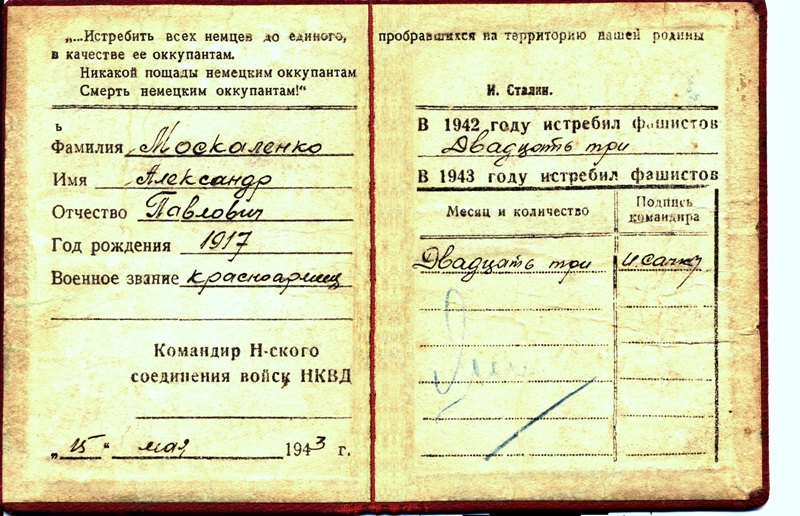 „...Истребить всех немцев до единого, пробравшихся на территорию нашей родины
в качестве ее оккупантам.
Никакой пощады немецким оккупантам
Смерть немецким оккупантам!“
И. Сталин.
ь
Фамилия Москаленко
Имя Александр
Отчество Павлович
Год рождения 1917
Военное звание красноармеец
Командир Н-ского
соединения войск НКВД
„15“ мая 1943 г.
В 1942 году истребил фашистов
Двадцать три
В 1943 году истребил фашистов
Месяц и количество
Подпись
командира
Двадцать три